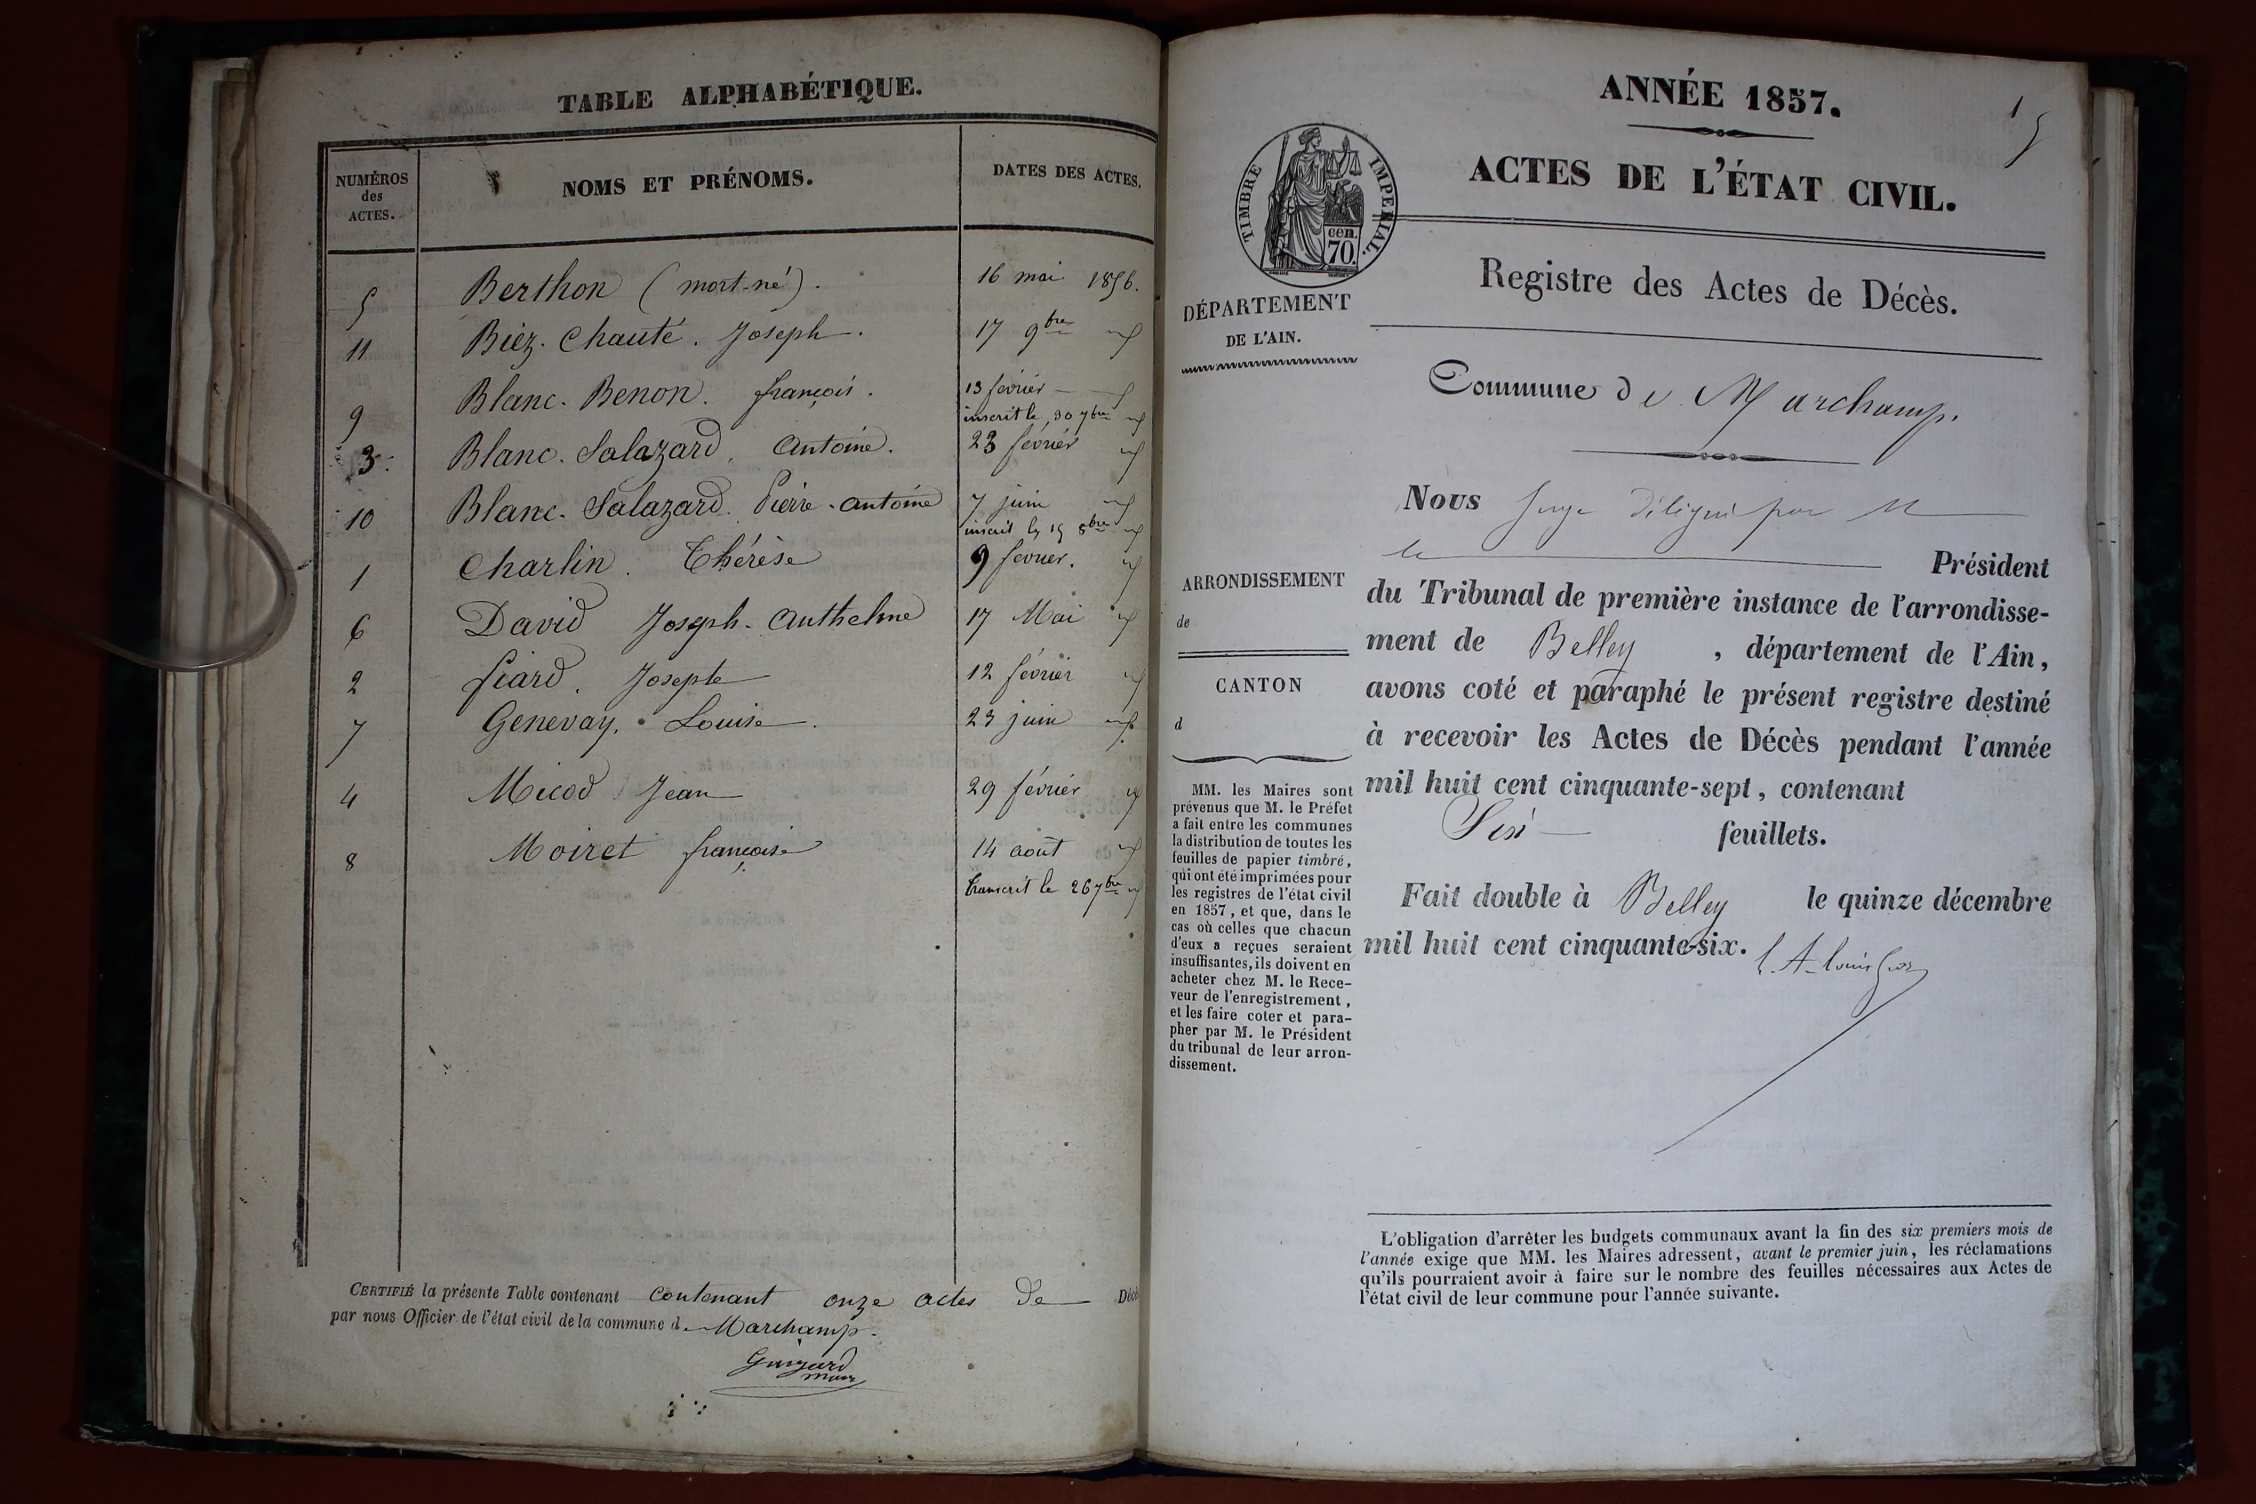 TABLE ALPHABÉTIQUE.
NUMÉROS des ACTES.
NOMS ET PRÉNOMS.
DATES DES ACTES.
5 Berthon (mort-né). 16 mai 1856.
11 Biéz. Chauté. Joseph. 17 9bre
9 Blanc. Benon. françois. 13 février
inscrit le 30 7bre
3 Blanc. Salazard. Antoine. 23 février
10 Blanc. Salazard. Pierre-antoine 7 juin
inscrit le 15 8bre
1 Charlin. Thérèse 9 fevrier.
6 David Joseph-Anthelme 17 Mai
2 fiard. Josepte 12 février
7 Genevay. Louise. 23 juin
4 Micod Jean 29 février
8 Moiret françoise 14 août
transcrit le 26 7bre
CERTIFIÉ la présente Table contenant contenant onze actes de Décè
par nous Officier de l'état civil de la commune d Marchamp.
Guigard
maire
15
ANNÉE 1857.
ACTES DE L'ÉTAT CIVIL.
TIMBRE IMPERIAL.
cen.
70.
Registre des Actes de Décès.
DÉPARTEMENT
DE L'AIN.
Commune de Marchamp.
Nous Juge délégué par M
le Président
ARRONDISSEMENT
de
CANTON
d
du Tribunal de première instance de l'arrondisse-
ment de Belley, département de l'Ain,
avons coté et paraphé le présent registre destiné
à recevoir les Actes de Décès pendant l'année
mil huit cent cinquante-sept, contenant
Six feuillets.
Fait double à Belley le quinze décembre
mil huit cent cinquante-six.
MM. les Maires sont
prévenus que M. le Préfet
a fait entre les communes
la distribution de toutes les
feuilles de papier timbré,
qui ont été imprimées pour
les registres de l'état civil
en 1857, et que, dans le
cas où celles que chacun
d'eux a reçues seraient
insuffisantes, ils doivent en
acheter chez M. le Rece-
veur de l'enregistrement,
et les faire coter et para-
pher par M. le Président
du tribunal de leur arron-
dissement.
L'obligation d'arrêter les budgets communaux avant la fin des six premiers mois de
l'année exige que MM. les Maires adressent, avant le premier juin, les réclamations
qu'ils pourraient avoir à faire sur le nombre des feuilles nécessaires aux Actes de
l'état civil de leur commune pour l'année suivante.